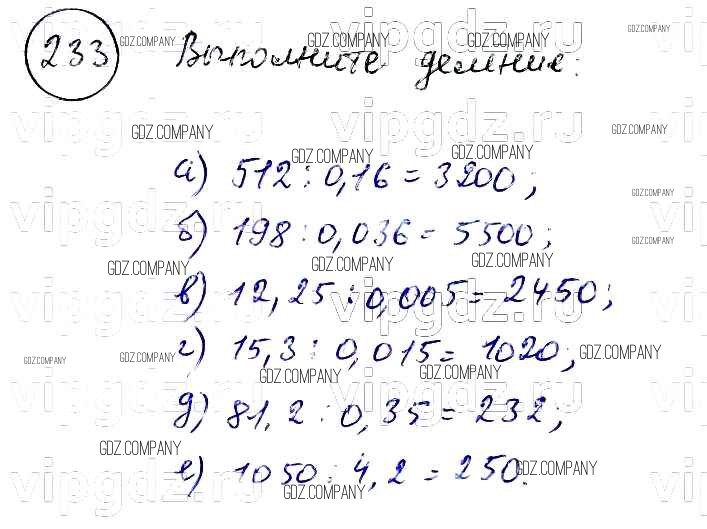 233 Выполните деление:
а) 512 : 0,16 = 3200;
б) 198 : 0,036 = 5500;
в) 12,25 : 0,005 = 2450;
г) 15,3 : 0,015 = 1020;
д) 81,2 : 0,35 = 232;
е) 1050 : 4,2 = 250.
vipgdz.ru
GDZ.COMPANY